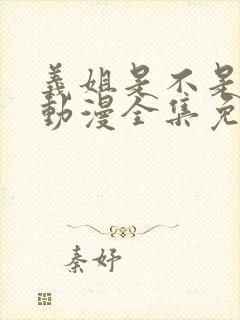 義姐是不是
動漫全集免
秦妤